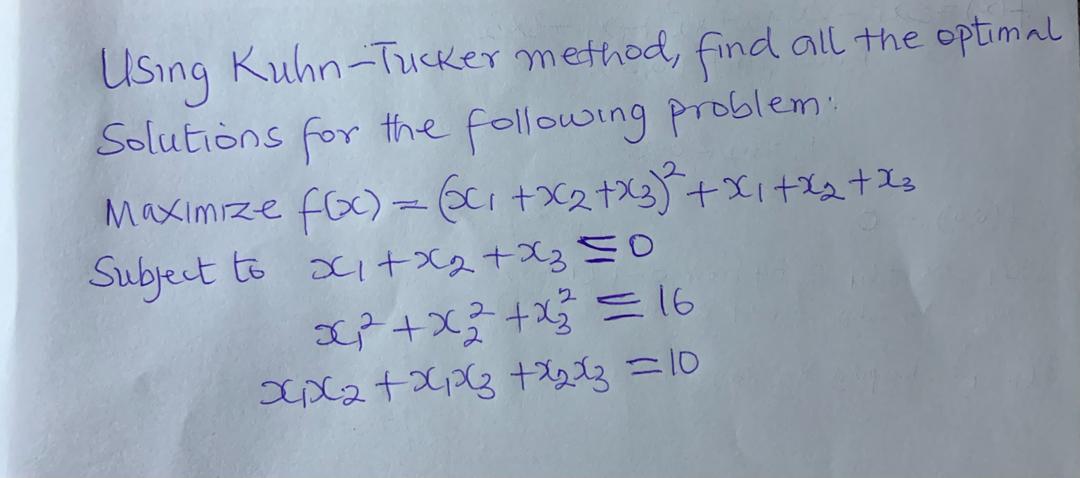 Using Kuhn-Tucker method, find all the optimal
Solutions for the following problem:
Maximize f(x) = (x₁ + x₂ + x₃)² + x₁ + x₂ + x₃
Subject to x₁ + x₂ + x₃ ≤ 0
x₁² + x₂² + x₃² = 16
x₁x₂ + x₁x₃ + x₂x₃ = 10